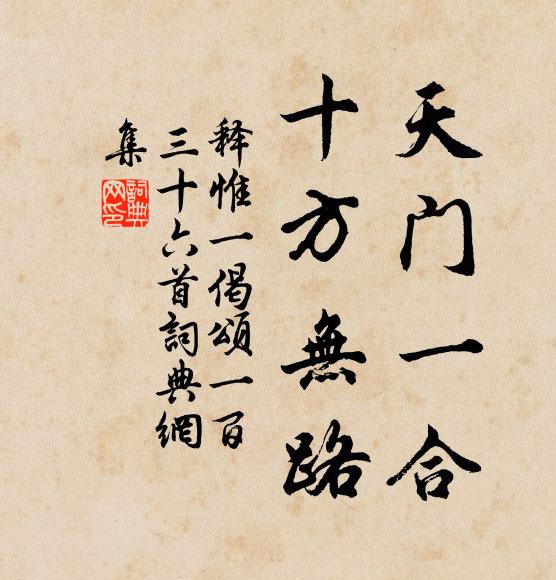 天门一合
十方無路
释惟一偈頌一百
三十六首詞典網
集
詞典
网印